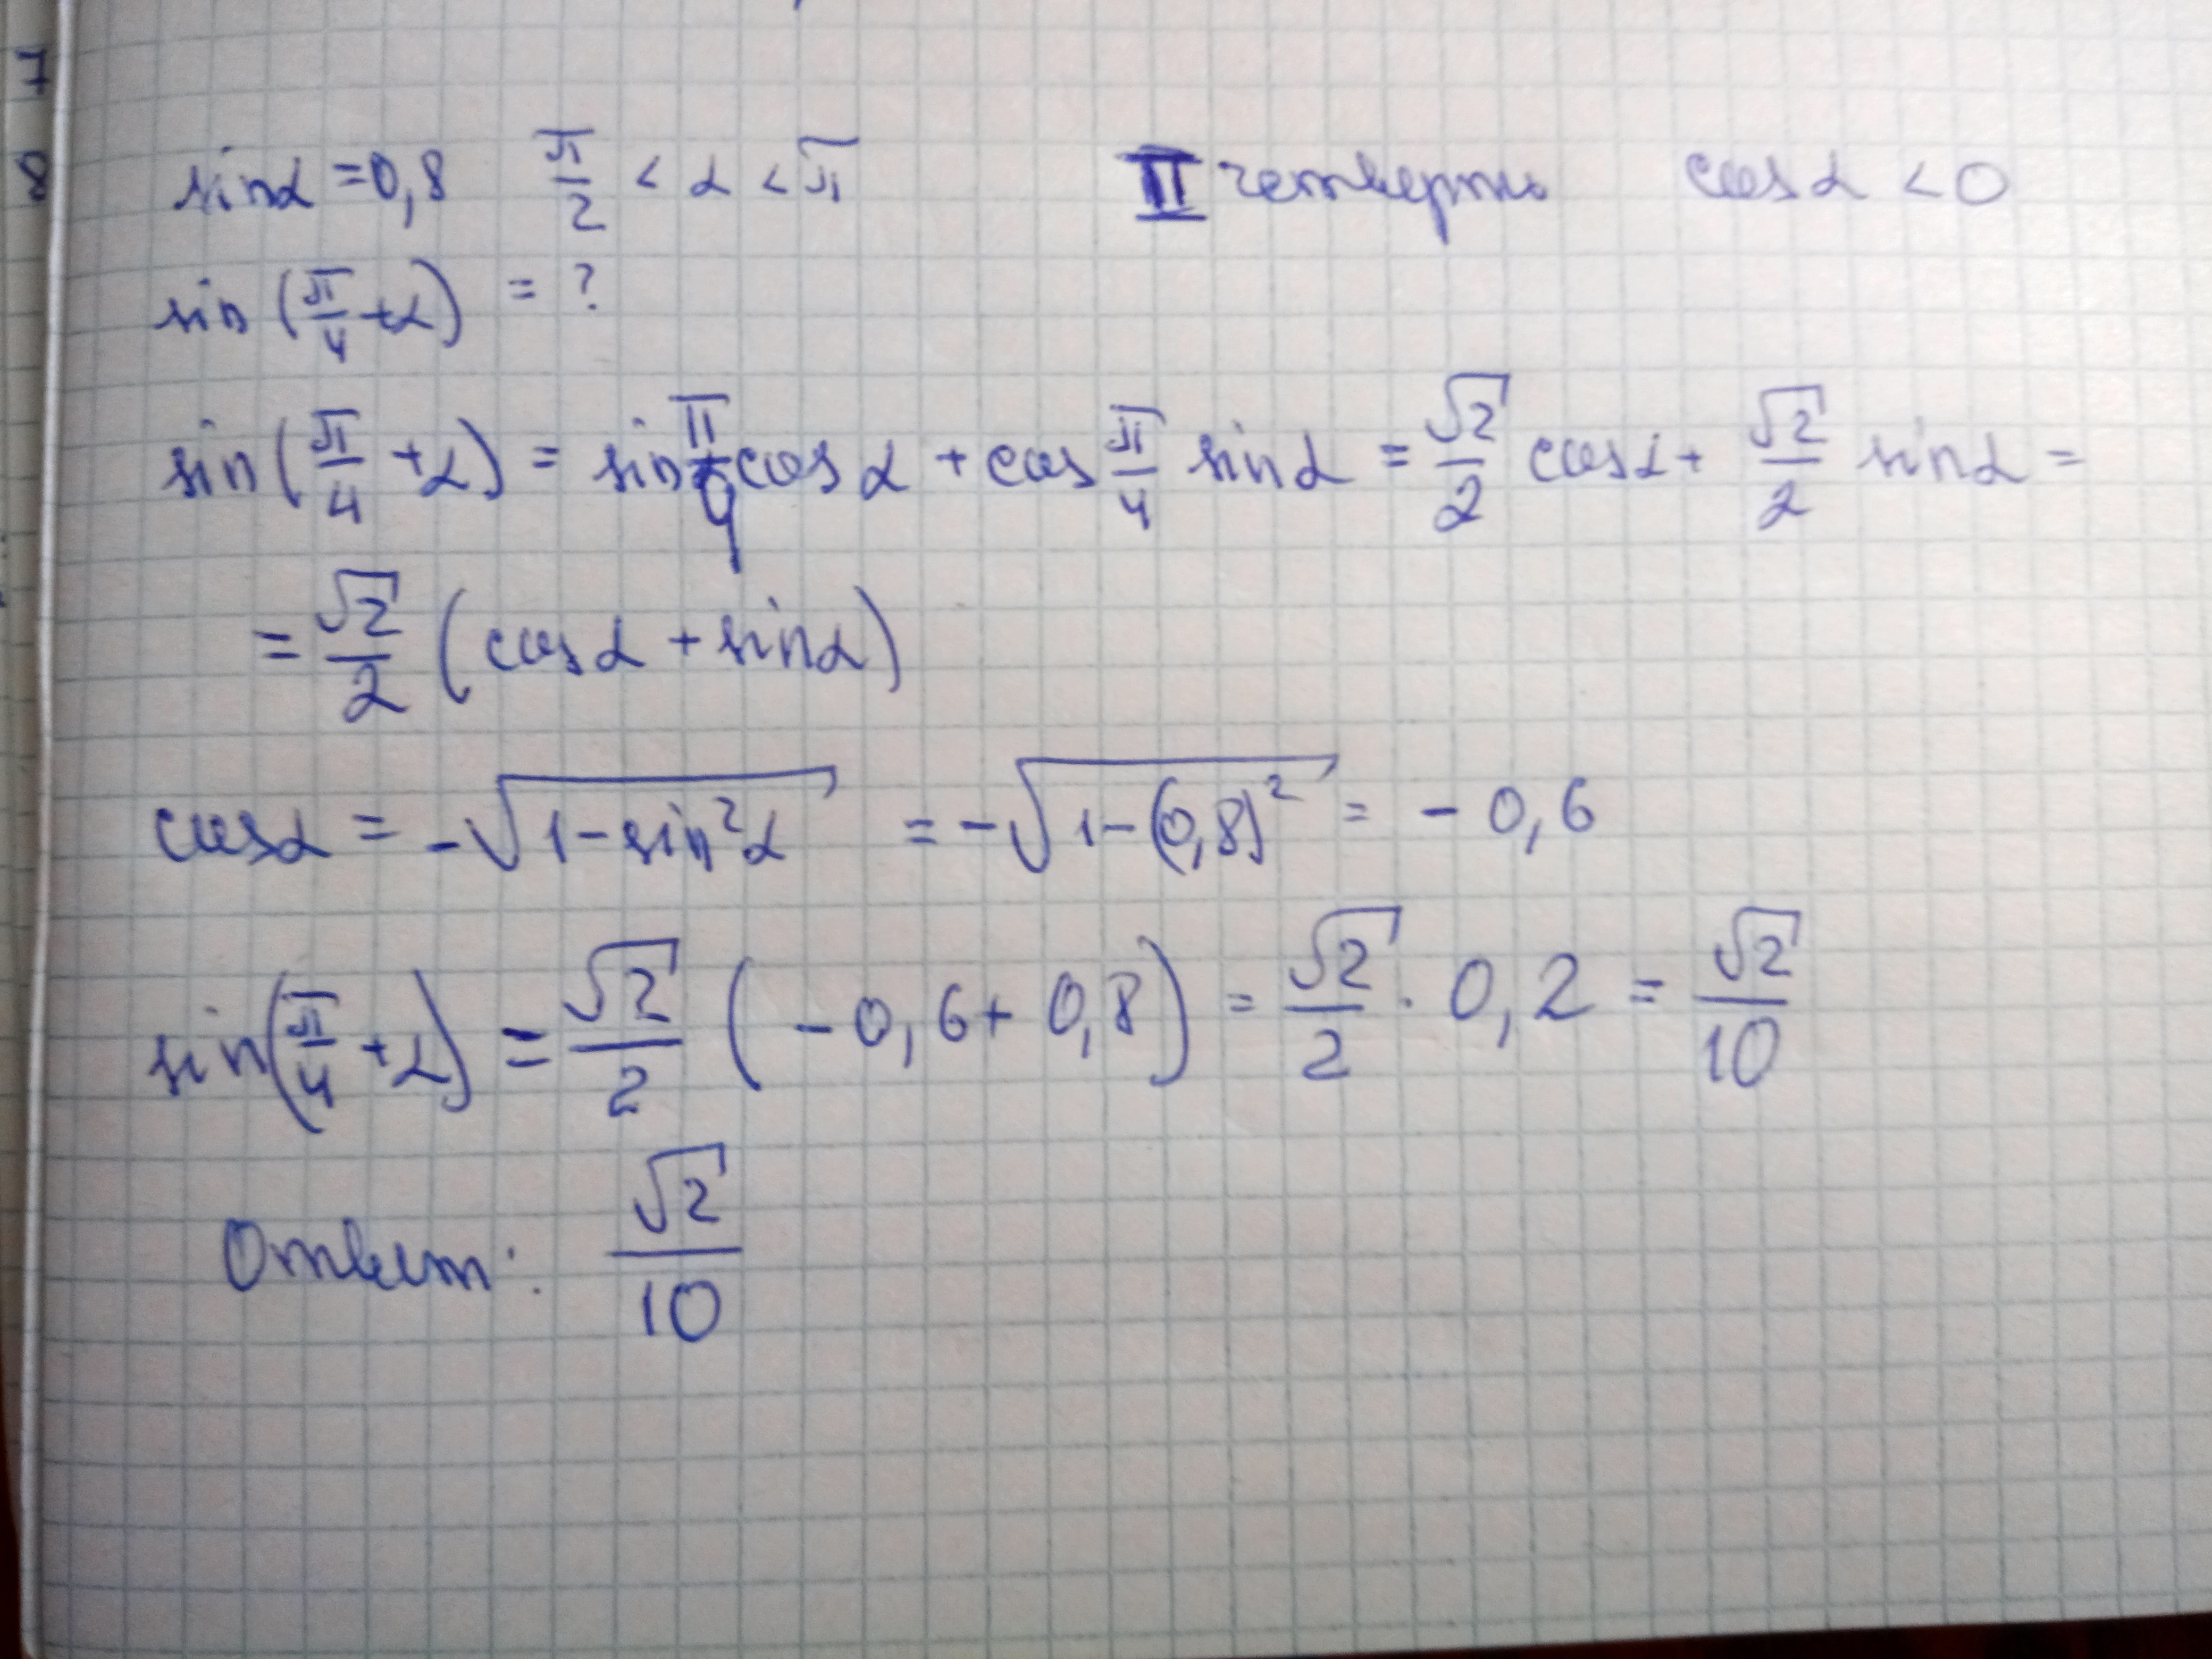 7
8
sinα = 0,8 π/2 < α < π II четверть cosα < 0
sin(π/4 + α) = ?
sin(π/4 + α) = sin π/4 cos α + cos π/4 sinα = √2/2 cosα + √2/2 sinα =
= √2/2 (cosα + sinα)
cosα = -√(1 - sin²α) = -√(1 - (0,8)²) = - 0,6
sin(π/4 + α) = √2/2 (- 0,6 + 0,8) = √2/2 · 0,2 = √2/10
Ответ: √2/10